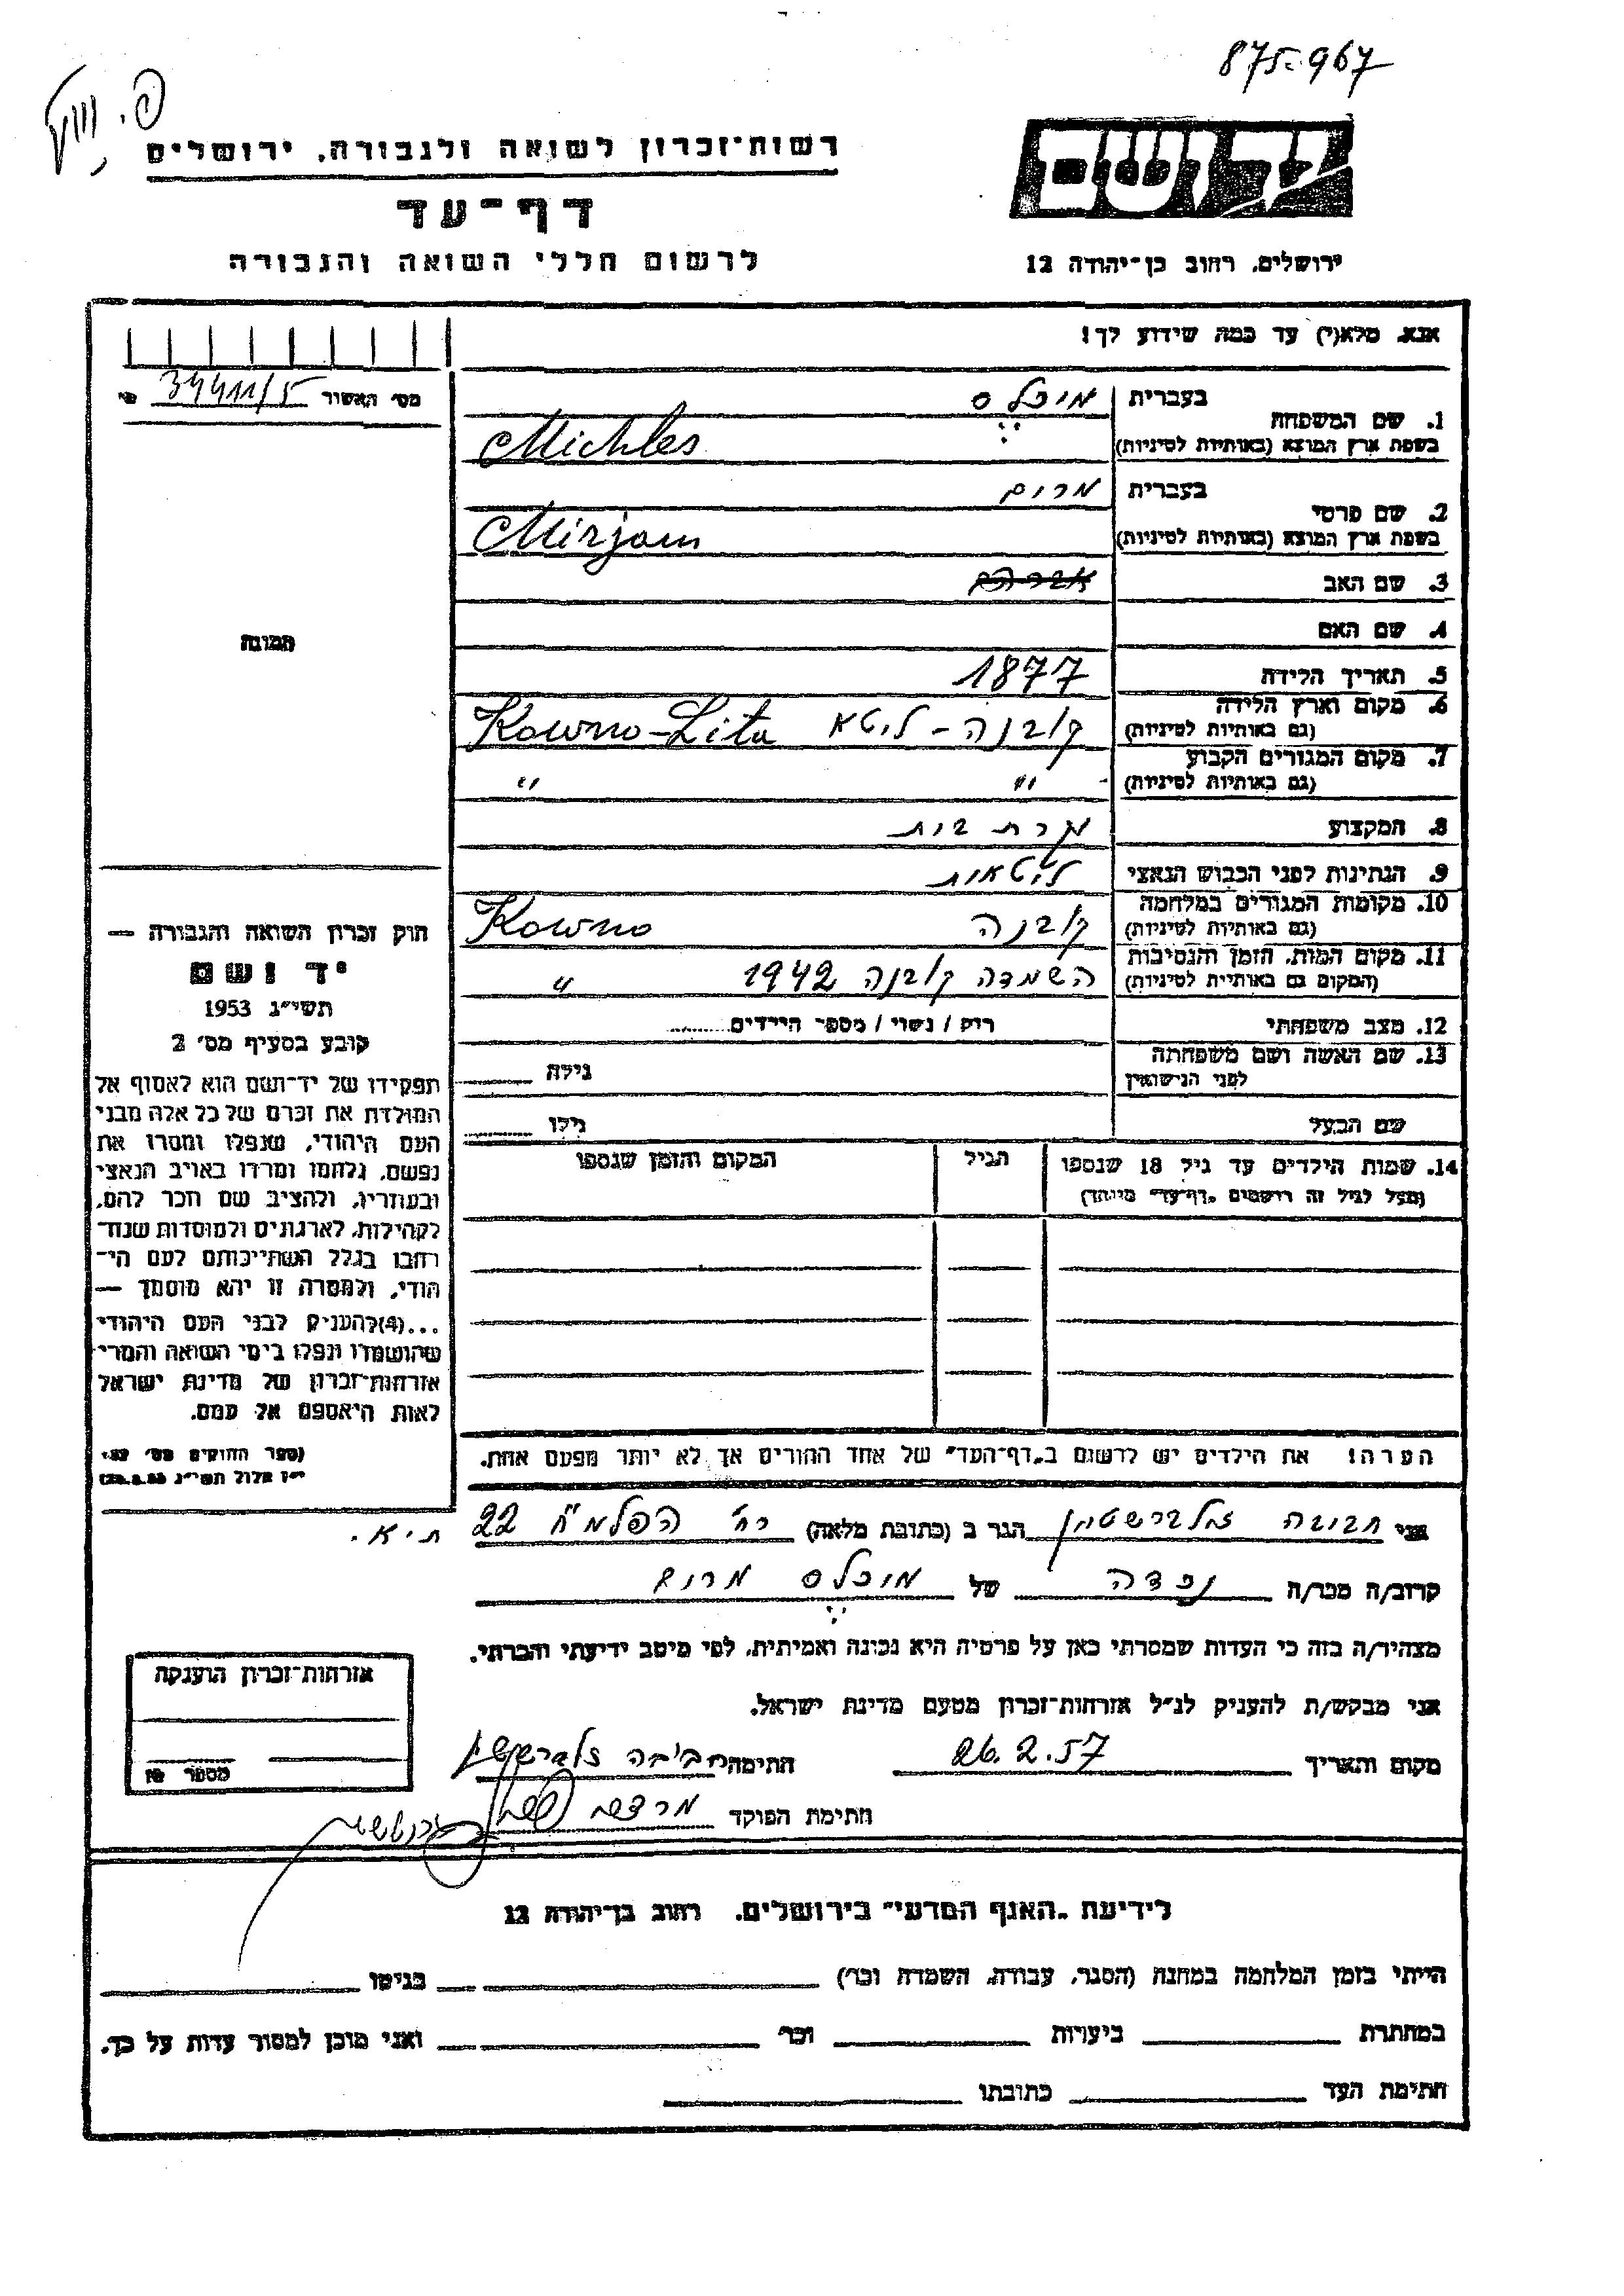 875-967
רשות־זכרון לשואה ולגבורה, ירושלים
דף־עד
לרשום חללי השואה והגבורה
יד ושם
ירושלים, רחוב בן־יהודה 12
אנא, מלא(י) עד כמה שידוע לך!
מס׳ האשור 34411/5
1. שם המשפחה בעברית מיכלס
בשפת ארץ המוצא (באותיות לטיניות) Michles
2. שם פרטי בעברית מרים
בשפת ארץ המוצא (באותיות לטיניות) Mirjam
3. שם האב אברהם
4. שם האם
5. תאריך הלידה 1877
6. מקום וארץ הלידה (גם באותיות לטיניות) קובנה - ליטא Kowno-Lita
7. מקום המגורים הקבוע (גם באותיות לטיניות) " "
8. המקצוע עקרת בית
9. הנתינות לפני הכבוש הנאצי ליטאית
10. מקומות המגורים במלחמה (גם באותיות לטיניות) קובנה Kowno
11. מקום המות, הזמן והנסיבות (המקום גם באותיות לטיניות) השמדה קובנה 1942 "
12. מצב משפחתי רוק / נשוי / מספר הילדים
13. שם האשה ושם משפחתה לפני הנישואין גילה
שם הבעל גילו
14. שמות הילדים עד גיל 18 שנספו הגיל המקום והזמן שנספו
(מעל לגיל זה רושמים "דף־עד" מיוחד)
הערה! את הילדים יש לרשום ב"דף־העד" של אחד ההורים אך לא יותר מפעם אחת.
תמונה
חוק זכרון השואה והגבורה —
יד ושם
תשי״ג 1953
קובע בסעיף מס׳ 2
תפקידו של יד־ושם הוא לאסוף אל
המולדת את זכרם של כל אלה מבני
העם היהודי, שנפלו ומסרו את
נפשם, נלחמו ומרדו באויב הנאצי
ובעוזריו, ולהציב שם וזכר להם,
לקהילות, לארגונים ולמוסדות שנח־
רבו בגלל השתייכותם לעם הי־
הודי, ולמטרה זו יהא מוסמך —
...(4) להעניק לבני העם היהודי
שהושמדו ונפלו בימי השואה והמרי
אזרחות־זכרון של מדינת ישראל
לאות היאספם אל עמם.
(ספר החוקים מס׳ 132,
י״ז אלול תשי״ג 28.8.53)
אני חביבה זילברשטיין הגר ב (כתובת מלאה) רח׳ הפלמ״ח 22 ת״א.
קרוב/ה מכר/ה נכדה של מיכלס מרים
מצהיר/ה בזה כי העדות שמסרתי כאן על פרטיה היא נכונה ואמיתית, לפי מיטב ידיעתי והכרתי.
אני מבקש/ת להעניק לנ״ל אזרחות־זכרון מטעם מדינת ישראל.
מקום ותאריך 26.2.57 חתימה חביבה זילברשטיין
חתימת הפוקד
אזרחות־זכרון הוענקה
מספר
לידיעת "האגף המדעי" בירושלים, רחוב בן־יהודה 12
הייתי בזמן המלחמה במחנה (הסגר, עבודה, השמדה וכו׳) בגיטו
במחתרת ביערות וכו׳ ואני מוכן למסור עדות על כך.
חתימת העד כתובתו